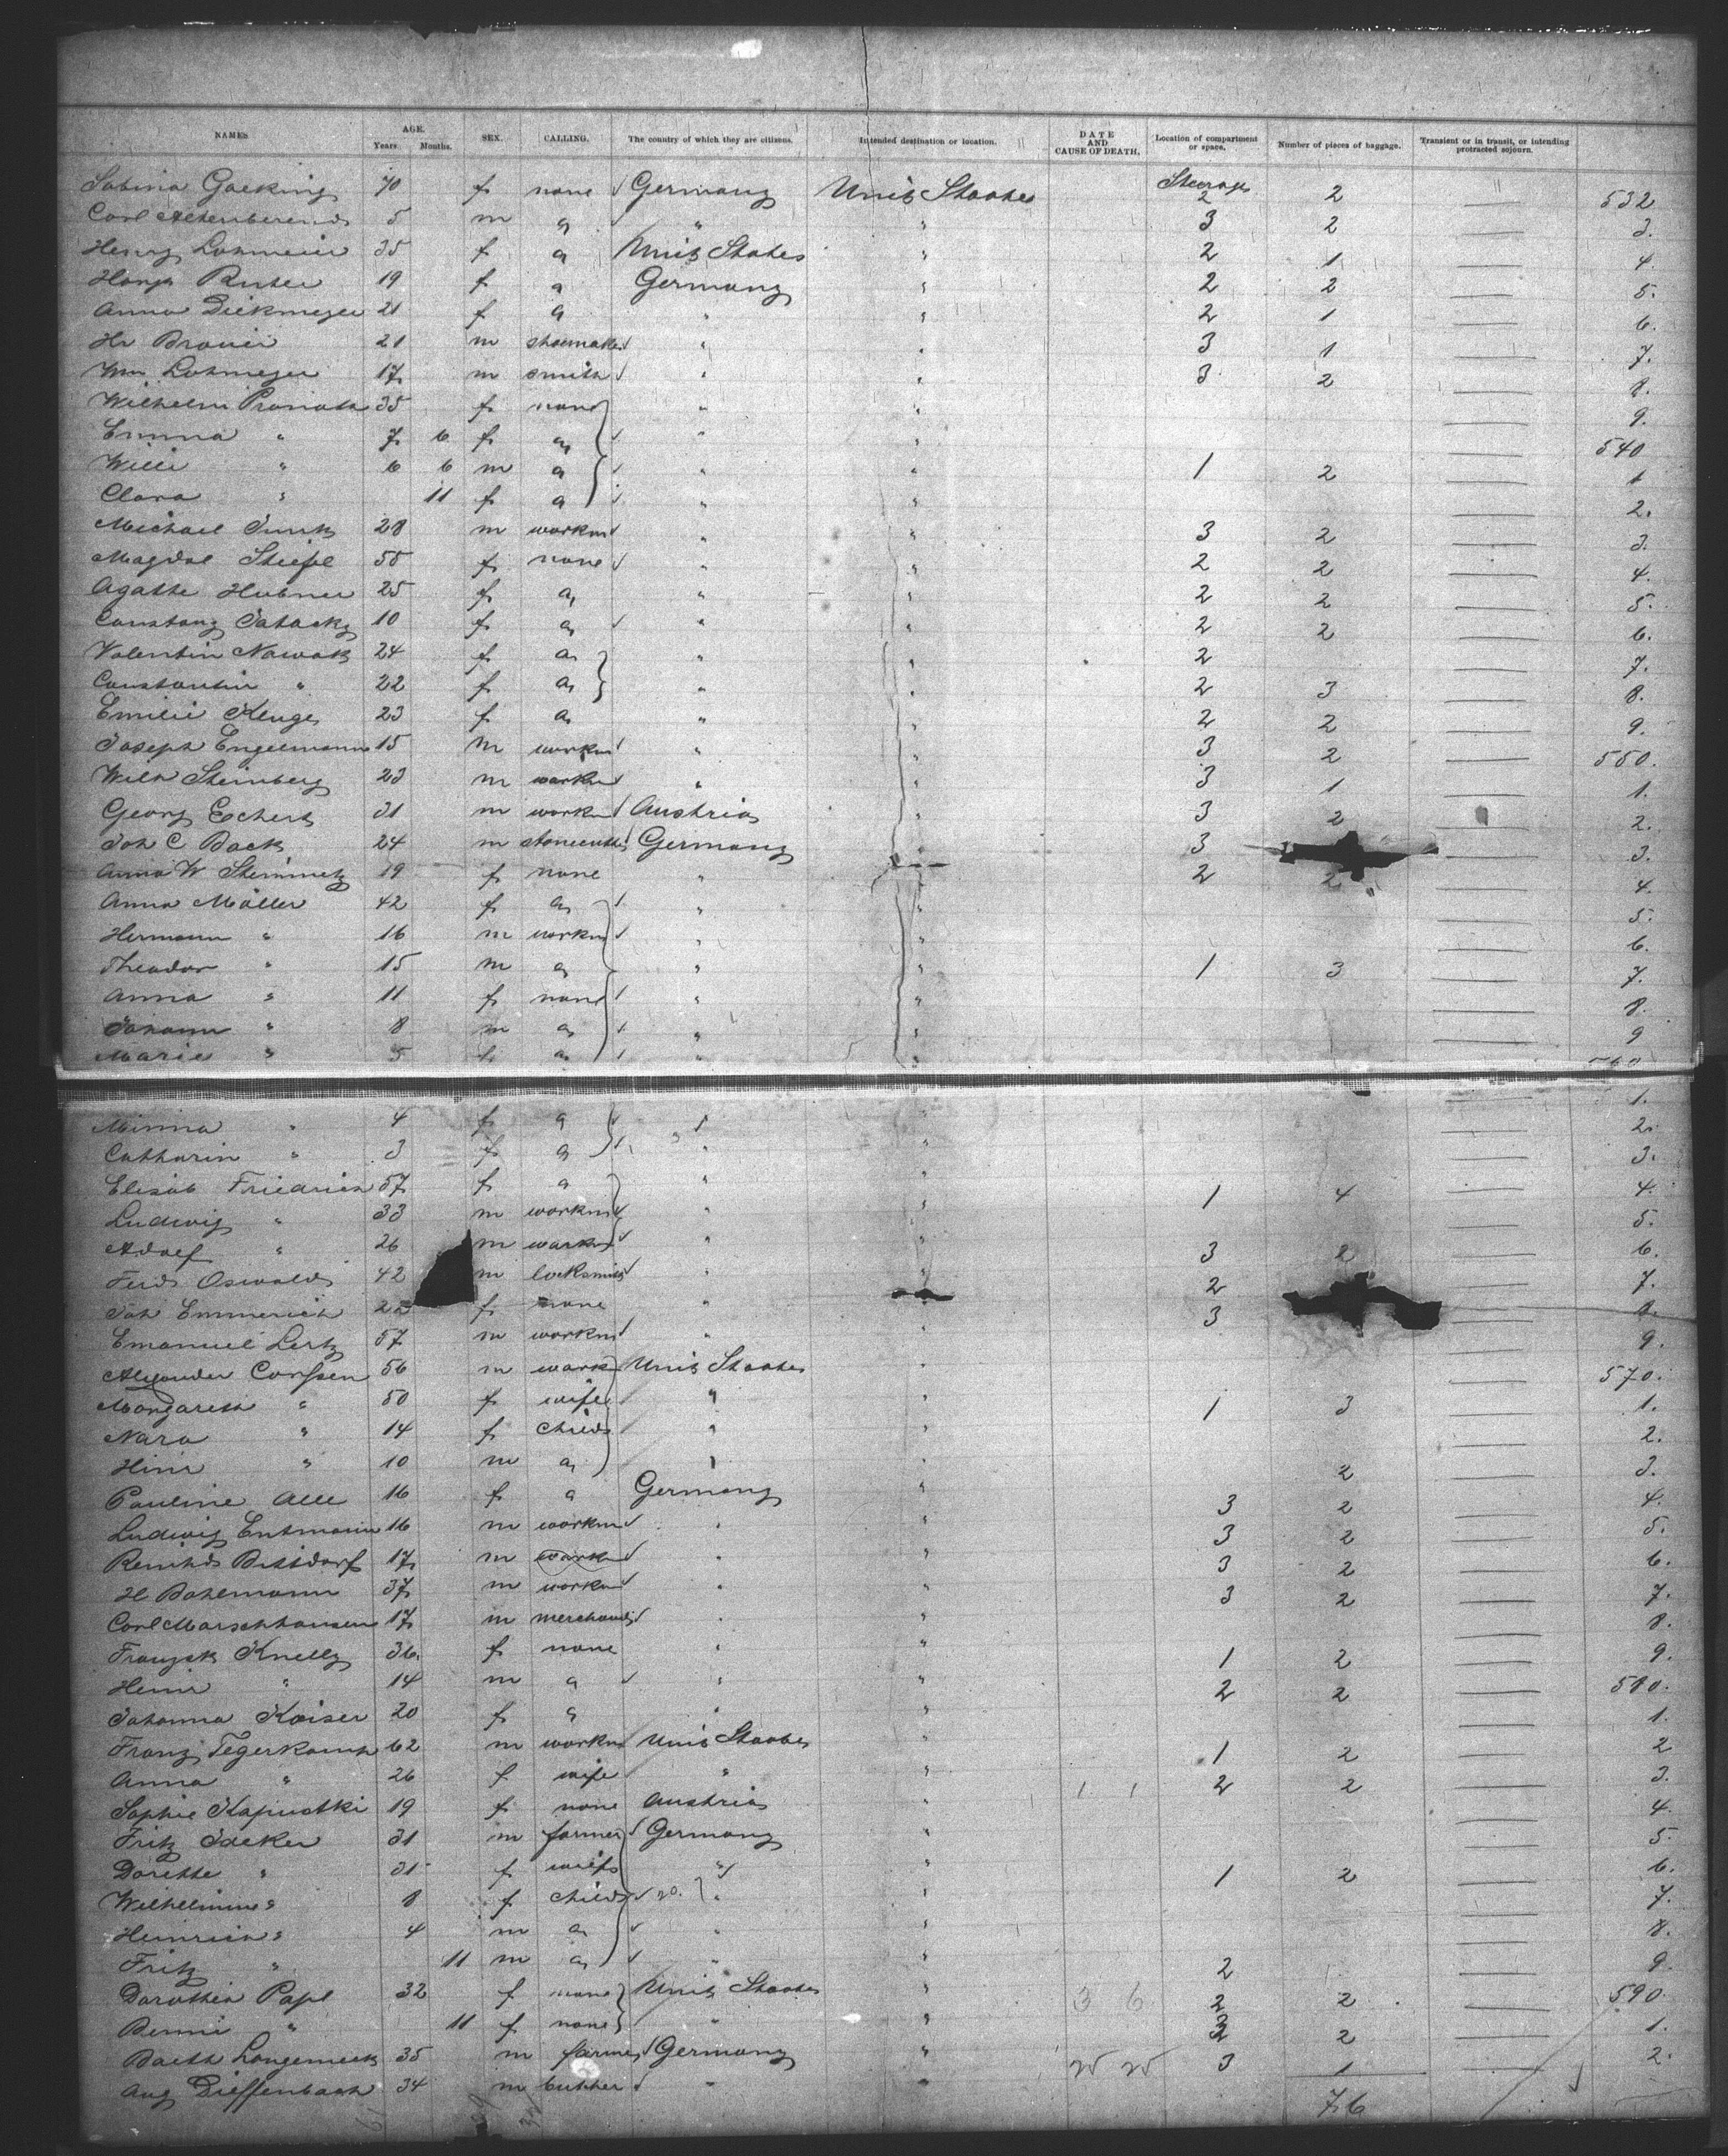 NAMES. AGE. Years. Months. SEX. CALLING. The country of which they are citizens. Intended destination or location. DATE AND CAUSE OF DEATH. Location of compartment or space. Number of pieces of baggage. Transient or in transit, or intending protracted sojourn.
Sabina Goeking 70 f none Germany Unit Staates Steerage 2 2 532
Carl 5 m " " " 3 2 3.
Henry Lohmeier 35 f " Unit States " 2 1 4.
Ruter 19 f " Germany " 2 2 5.
Anna Diekmeyer 21 f " " " 2 1 6.
Hr 21 m shoemaker " " 3 1 7.
Wm Lohmeyer 17 m smith " " 3 2 8.
Wilhelm 35 f none " " 9.
Emma " 7 6 f " " " 540
Willi " 6 6 m " " " 1 2 1
Clara " 11 f " " " 2.
Michael 28 m workm " " 3 2 3.
Magdal Stiefel f none " " 2 2 4.
Agathe Hubner 25 f " " " 2 2 5.
10 f " " " 2 2 6.
Valentin Nowak 24 f " " " 2 7.
Constantin " 22 f " " " 2 3 8.
Emilie Kluge 23 f " " " 2 2 9.
Joseph Engelmann 15 m workm " " 3 2 550.
Wilh Steinberg 23 m workm " " 3 1 1.
Georg Echert 31 m workm Austria " 3 2 2.
Joh C Back 24 m stonecutter Germany " 3 3.
Anna W Steinmetz 19 f none " " 2 2 4.
Anna Möller 42 f " " " 5.
Hermann " 16 m workm " " 6.
Theodor " 15 m " " " 1 3 7.
Anna " 11 f none " " 8.
Johann " 8 m " " " 9
Marie " 5 f " " " 560
1.
Minna " 4 f " " " 2.
Catharin " 3 f " " " 3.
Elisab Friedrich 57 f " " " 1 4 4.
Ludwig " 33 m workm " " 5.
Adolf " 26 m workm " " 3 2 6.
Ferd Oswald 42 m locksmith " " 2 7.
Joh Emmerich 22 f none " " 3 8.
Emanuel Lertz 57 m workm " " 9.
Alexander Corssen 56 m work Unit Staates " 570.
Margareth " 50 f wife " " 1 3 1.
Nara " 14 f child " " 2.
Hinr " 10 m " " " 2 3.
Pauline Alle 16 f " Germany " 3 2 4.
Ludwig Entmann 16 m workm " " 3 2 5.
17 m workm " " 3 2 6.
H Bohlmann 37 m workm " " 3 2 7.
Carl Marschhausen 17 m merchand " " 8.
Franzsk Knelly 36. f none " " 1 2 9.
Heinr " 14 m " " " 2 2 580.
Johanna Kaiser 20 f " " " 1.
Franz Tegerkamp 62 m workm Unit Staates " 1 2 2
Anna " 26 f wife " " 1 1 2 2 3.
Sophie Kapustki 19 f none Austria " 4.
Fritz Ideker 31 m farmer Germany " 5.
Dorette " 31 f wife " " 1 2 6.
Wilhelmine " 8 f child " " 7.
Heinrich " 4 m " " " 8.
Fritz " 11 m " " " 2 9.
Dorothea Pape 32 f none Unit Staates " 3 6 2 2 590
" 11 f none " " 2 1.
Barth Langemeck 35 m farmer Germany " 3 1 2.
Aug Dieffenbach 34 m butcher " "
76